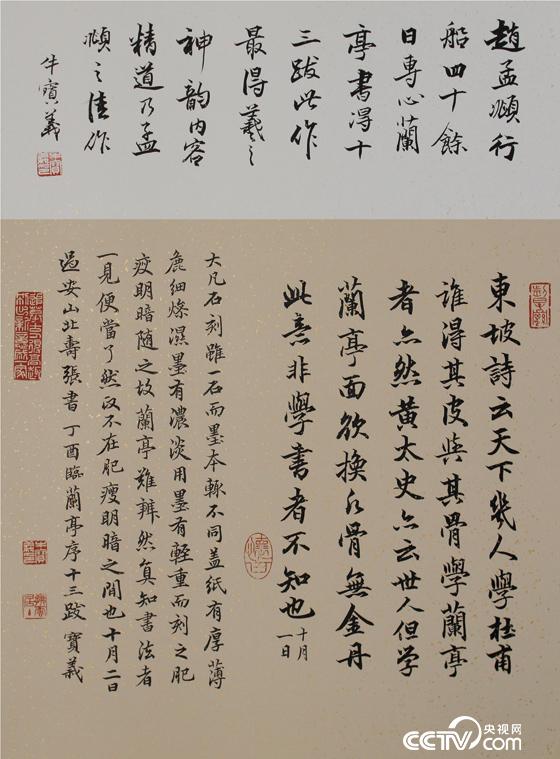 趙孟頫行
船四十餘
日專心蘭
亭書得十
三跋此作
最得羲之
神韵内容
精道乃孟
頫之佳作
牛寶義
東坡詩云天下幾人學杜甫
誰得其皮與其骨學蘭亭
者亦然黃太史亦云世人但學
蘭亭面欲換凡骨無金丹
此意非學書者不知也
十月
一日
大凡石刻雖一石而墨本輒不同盖紙有厚薄
麁細燥濕墨有濃淡用墨有輕重而刻之肥
瘦明暗随之故蘭亭難辨然真知書法者
一見便當了然政不在肥瘦明暗之間也十月二日
過安山北壽張書 丁酉臨蘭亭序十三跋 寶義
央视网
CCTV.com